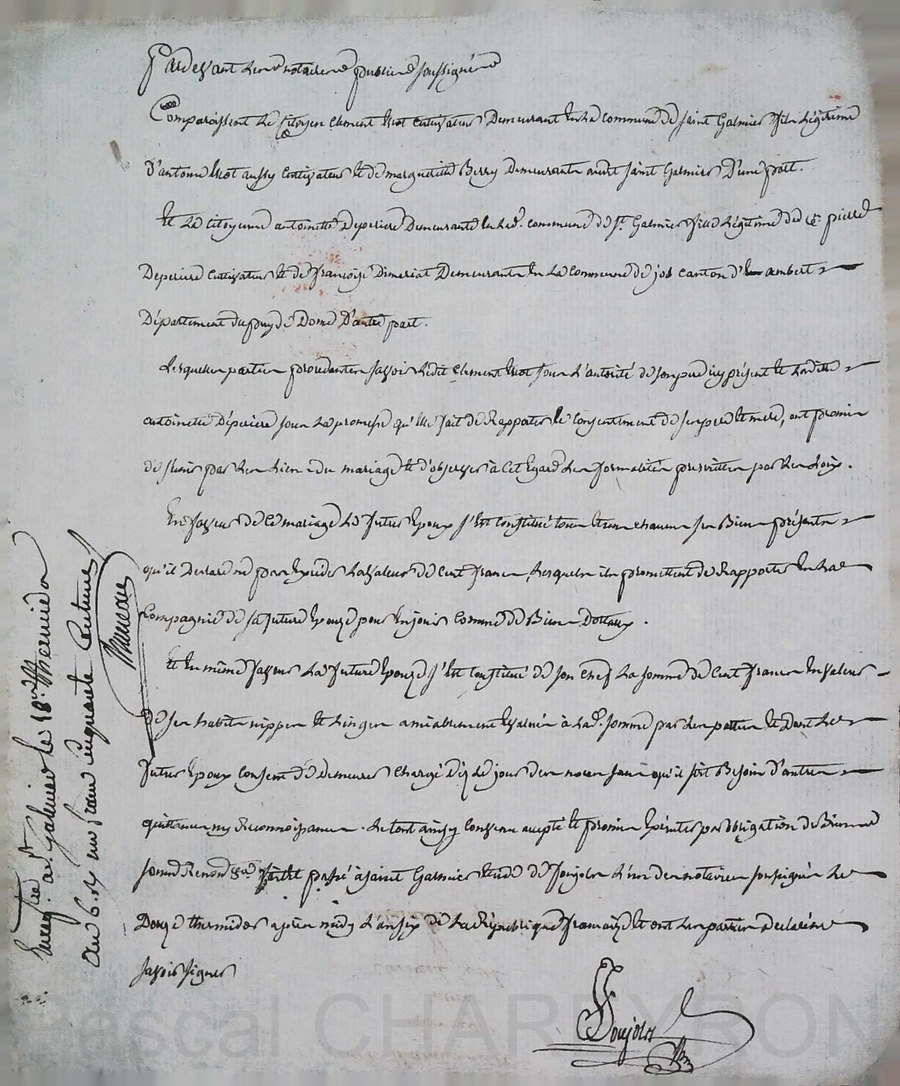 Pardevant les notaires publics soussignés
Comparaissent le Citoyen clement cultivateur Demeurant en la commune de saint Galmier fils Légitime
D'antoine aussy Cultivateur et de margueritte Demeurants audit saint Galmier D'une part.
et la Citoyenne antoinette Deperiere Demeurante en lad. commune de st. Galmier fille Légitime de Cen. pierre
Deperiere Cultivateur et de françoise Dimeriat Demeurants en la Commune de job canton d'ambert
Département du puy de Dome D'autre part.
Lesquelles parties procedantes savoir ledit Clement sous l'autorité de son pere icy présent et laditte
antoinette Déperiere sous la promesse qu'elle fait de Rapporter le Consentement de ses pere et mere, ont promis
de s'unir par les liens du mariage et d'observer à Cet Egard les formalités prescrittes par les Loix.
En faveur de Ce mariage le futur Epoux s'est Constitué tous et uns chacuns ses Biens présents
qu'il Declare ne pas Exceder la valeur de Cent francs, Lesquels ils promettent de Rapporter en la
Compagnie de sa future Epouze pour en jouir Comme de Biens Dottaux.
Et en même faveur La future Epouze s'est Constitué de son Chef La somme de Cent francs en valeur
de ses habits nippes et Linges amiablement Evalués à lad. somme par les parties et Dont le
futur Epoux Consent de demeurer Chargé dez le jour des noces sans qu'il soit Besoin d'autre
quittance ny Reconnoissance. Le tout ainsy Convenu accepté et promis Executer par obligation de Biens
soumis Renon &a. fait et passé à saint Galmier Etude de Ponjolas L'un des notaires soussignés Le
Douze thermidor après midy L'an six de la République française et ont Les parties Declaré ne
savoir signer
Enregistré a St. Galmier le 18 Thermidor
an 6. un franc cinquante Centimes